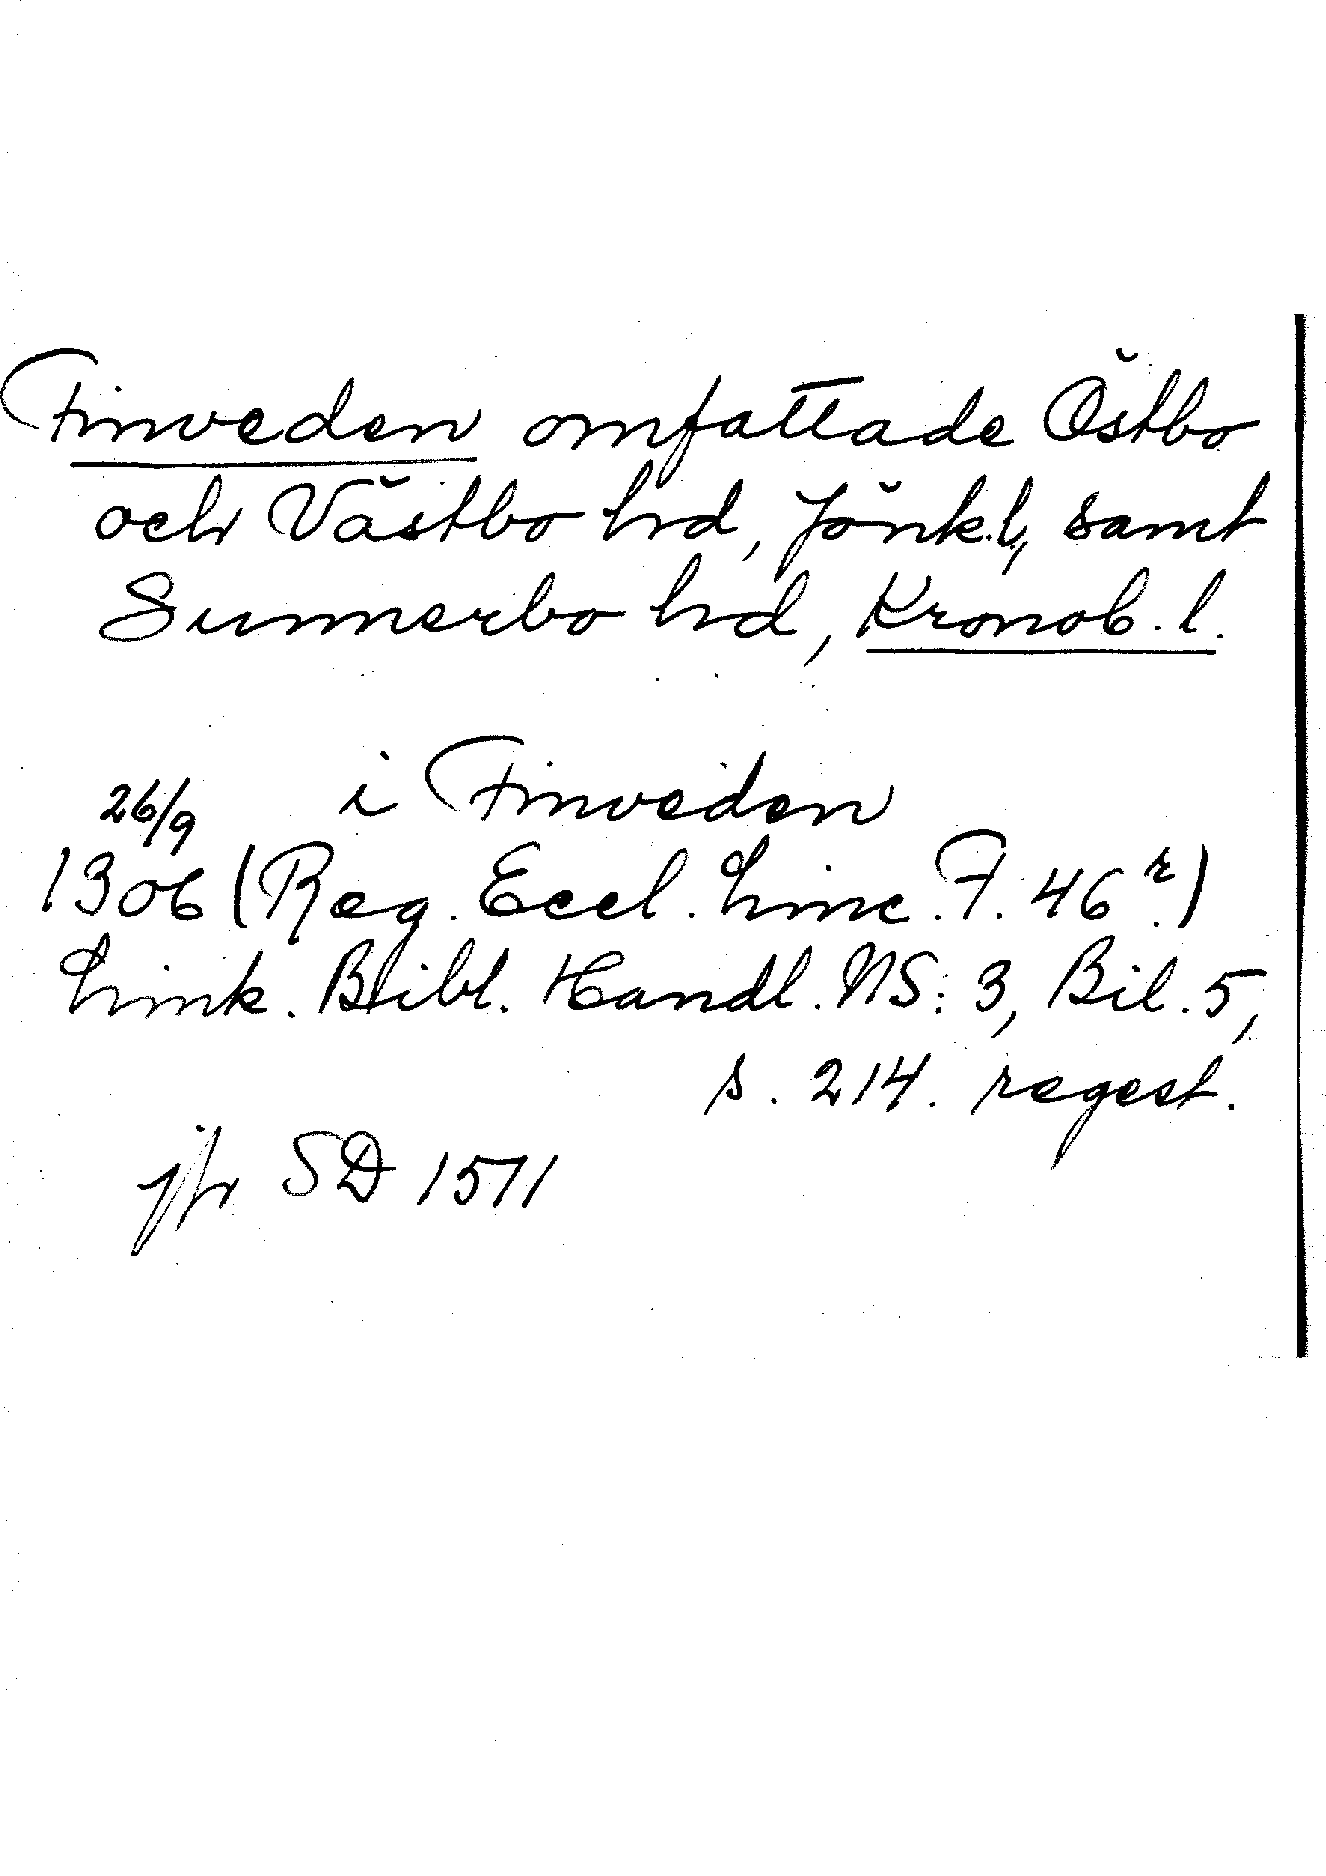 Finveden omfattade Östbo
och Västbo hrd, Jönk.l, samt
Sunnerbo hrd, Kronob. l.
i Finveden
26/9
1306 (Reg. Eccl. Linc. F. 46 r.)
Link. Bibl. Handl. NS: 3, Bil. 5,
s. 214. regest.
jfr SD 1511